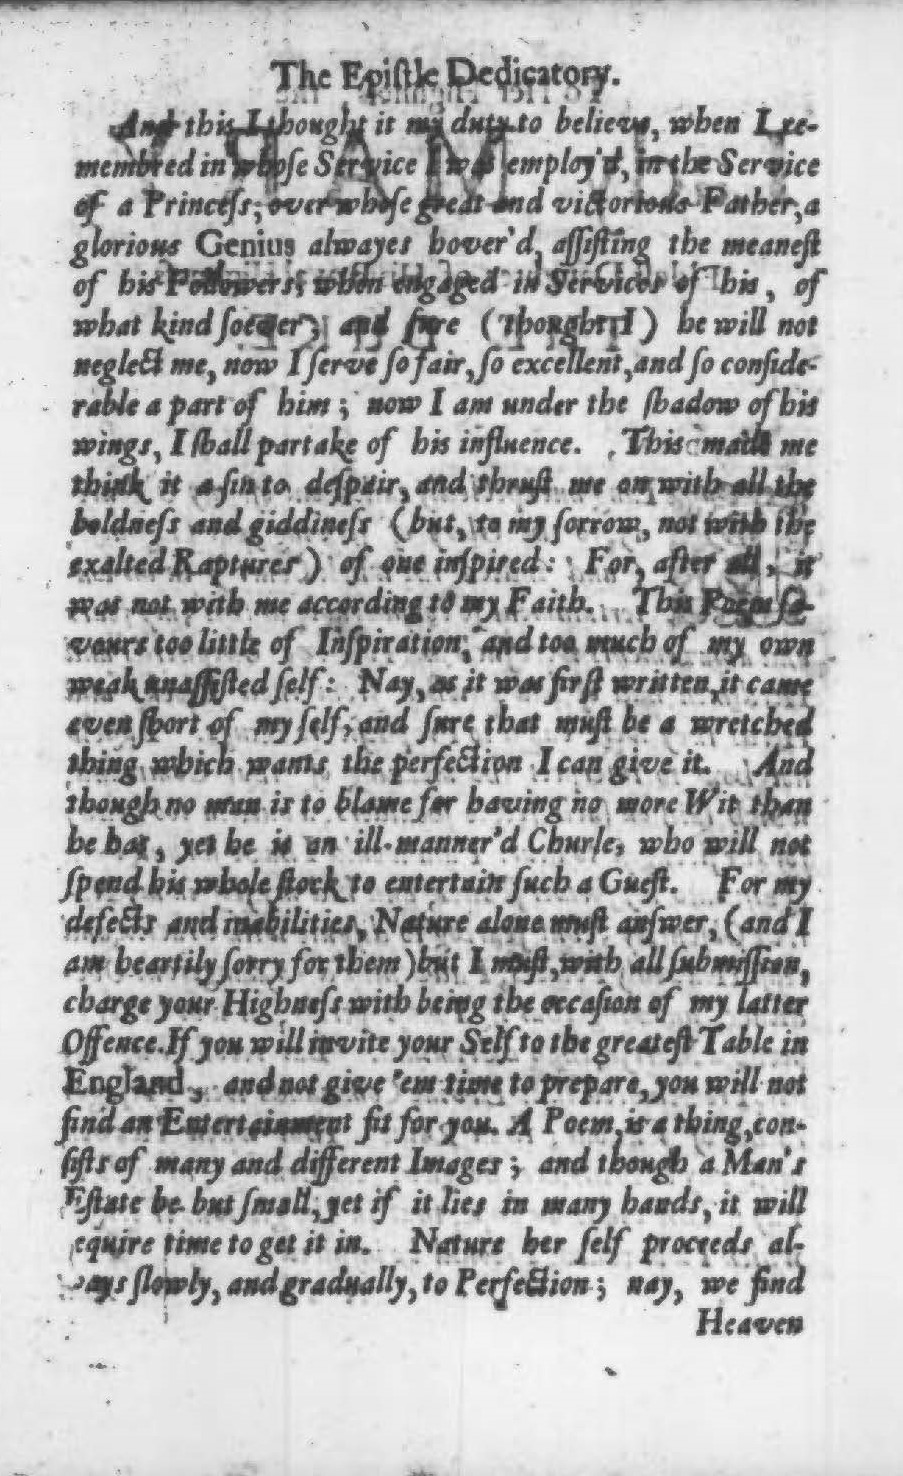 The Epiſtle Dedicatory.
And this I thought it my duty to believe, when I re-
membred in whoſe Service I was employ'd, in the Service
of a Princeſs, over whoſe great and victorious Father, a
glorious Genius alwayes hover'd, aſſiſting the meaneſt
of his Followers, when engaged in Services of his, of
what kind ſoever; and ſure (thought I) he will not
neglect me, now I ſerve ſo fair, ſo excellent, and ſo conſide-
rable a part of him; now I am under the ſhadow of his
wings, I ſhall partake of his influence. This made me
think it a ſin to deſpair, and thruſt me on with all the
boldneſs and giddineſs (but, to my ſorrow, not with the
exalted Raptures) of one inſpired: For, after all, it
was not with me according to my Faith. This Poem ſa-
vours too little of Inſpiration, and too much of my own
weak unaſſiſted ſelf: Nay, as it was firſt written, it came
even ſhort of my ſelf, and ſure that muſt be a wretched
thing which wants the perfection I can give it. And
though no man is to blame for having no more Wit than
he has, yet he is an ill-manner'd Churle, who will not
ſpend his whole ſtock to entertain ſuch a Gueſt. For my
defects and inabilities, Nature alone muſt anſwer, (and I
am heartily ſorry for them) but I muſt, with all ſubmiſſion,
charge your Highneſs with being the occaſion of my latter
Offence. If you will invite your Self to the greateſt Table in
England, and not give 'em time to prepare, you will not
find an Entertainment fit for you. A Poem, is a thing, con-
ſiſts of many and different Images; and though a Man's
Eſtate be but ſmall, yet if it lies in many hands, it will
equire time to get it in. Nature her ſelf proceeds al-
ays ſlowly, and gradually, to Perfection; nay, we find
Heaven